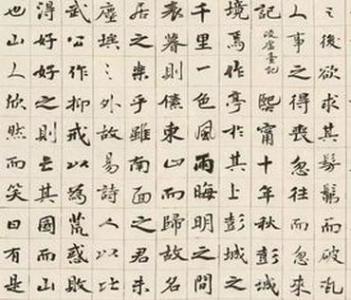 之後欲求其髣髴而破瓦
人事之得喪忽往而忽來
記 凌虛臺記 熙甯十年秋彭城
境焉作亭於其上彭城之
千里一色風雨晦明之間
表暮則傃東山而歸故名
居之樂乎雖南面之君未
塵埃之外故易詩人以比
武公作抑戒以為荒惑敗
得好好之則亡其國而山
也山人欣然而笑曰有是